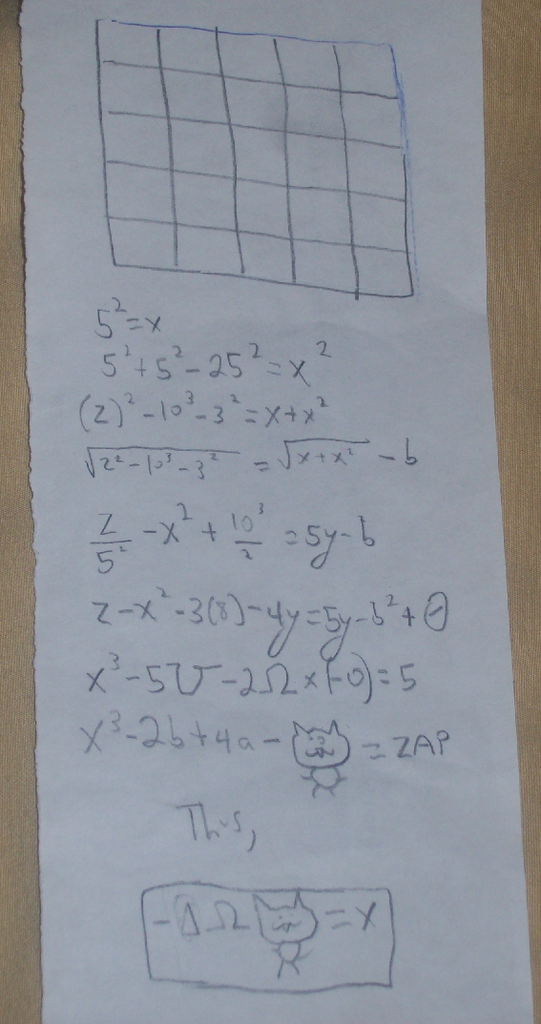 5² = x
5² + 5² - 25² = x²
(z)² - 10³ - 3² = x + x²
√(z² - 10³ - 3²) = √(x + x²) - b
z/5² - x² + 10³/2 = 5y - b
z - x² - 3(8) - 4y = 5y - b² + Θ
x³ - 5℧ - 2Ω x (-0) = 5
x³ - 2b + 4a - = ZAP
Thus,
-ΔΩ = x